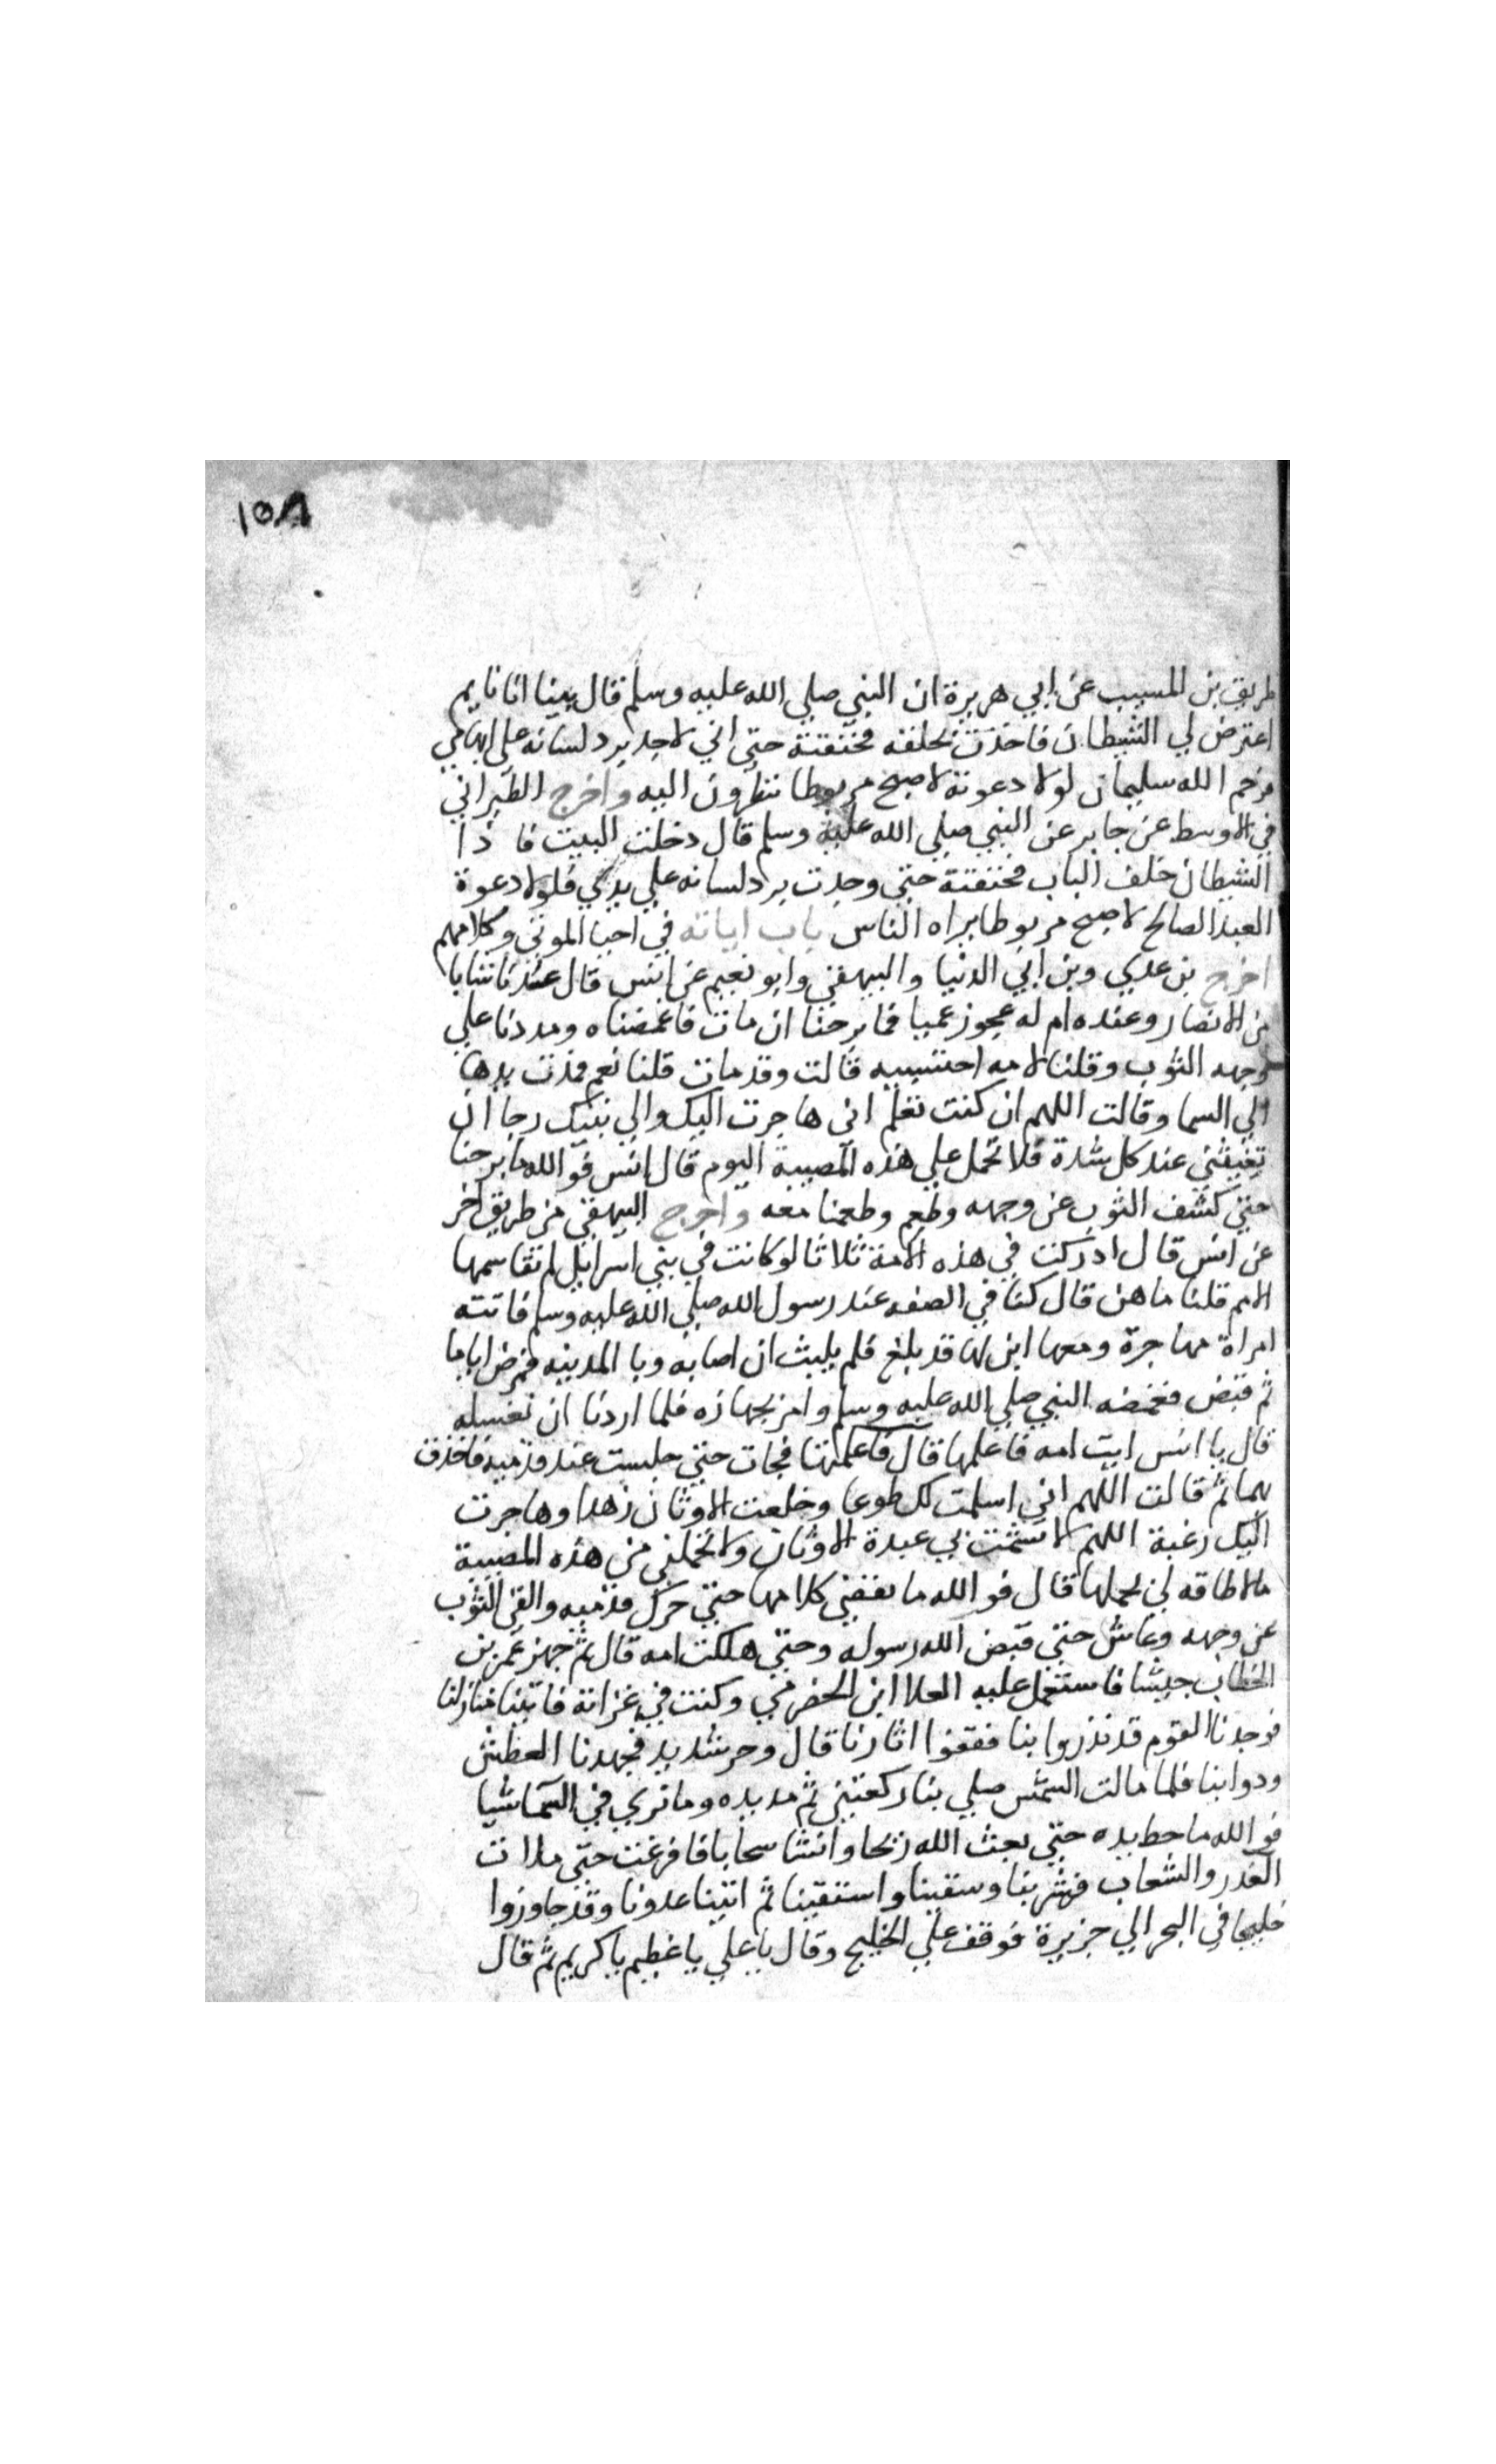 ١٥٨
طريق بن المسيب عن ابي هريرة ان النبي صلي الله عليه وسلم قال بينا انا نايم
اعترض لي الشيطان فاخذت بحلقه فخنقتة حتي اني لاجد برد لسانه علي ابهامي
فرحم الله سليمان لولا دعوتة لاصبح مربوطا تنظرون اليه واخرج الطبراني
في الاوسط عن جابر عن النبي صلي الله عليه وسلم قال دخلت البيت فا ذا
الشيطان خلف الباب فخنقتة حتي وجدت برد لسانه علي يدي فلولا دعوة
العبد الصالح لاصبح مربوطا يراه الناس باب اياته في احيا الموتي وكلامهم
اخرج بن عدي وبن ابي الدنيا والبيهقي وابو نعيم عن انس قال عندنا شابا
من الانصار وعنده ام له عجوز عميا فما برحنا ان مات فاغمضناه ومددنا علي
وجهه الثوب وقلنا لامه احتسبيه قالت وقد مات قلنا نعم فمدت يدها
الي السما وقالت اللهم ان كنت تعلم اني هاجرت اليك والي نبيك رجا ان
تغيثني عند كل شدة فلا تحمل علي هذه المصيبة اليوم قال انس فو الله ما برحنا
حتي كشف الثوب عن وجهه وطعم وطعمنا معه واخرج البيهقي من طريق اخر
عن انس قال ادركت في هذه الامة ثلاثا لو كانت في بني اسرايل لم تقاسمها
الامم قلنا ما هن قال كنا في الصفه عند رسول الله صلي الله عليه وسلم فاتته
امراة مهاجرة ومعها ابن لها قد بلغ فلم يلبث ان اصابه وبا المدينه فمرض اياما
ثم قبض فغمضه النبي صلي الله عليه وسلم وامر بجهازه فلما اردنا ان نغسله
قال يا انس ايت امه فاعلمها قال فاعلمتها فجات حتي جلست عند قدميه فاخذت
بهما ثم قالت اللهم اني اسلمت لك طوعا وخلعت الاوثان زهدا وهاجرت
اليك رغبة اللهم لا تشمت بي عبدة الاوثان ولا تحملني من هذه المصيبة
مالا طاقه لي بحملها قال فو الله ما نقضي كلامها حتي حرك قدميه والقي الثوب
عن وجهه وعاش حتي قبض الله رسوله وحتي هلكت امه قال ثم جهز عمر بن
الخطاب جيشا فاستعمل عليه العلا ابن الحضرمي وكنت في غزاتة فاتينا مغازلنا
فوجدنا القوم قد نذروا بنا فعفوا اثارنا قال وحر شديد فجهدنا العطش
ودوابنا فلما مالت الشمس صلي بنا ركعتين ثم مد يده وما نري في السما شيا
فو الله ما حط يده حتي بعث الله ريحا وانشا سحابا فافرغت حتي ملات
الغدر والشعاب فشربنا وسقينا واستقينا ثم اتينا عدونا وقد جاوزوا
خليجا في البحر الي جزيرة فوقف علي الخليج وقال يا علي يا عظيم يا كريم ثم قال